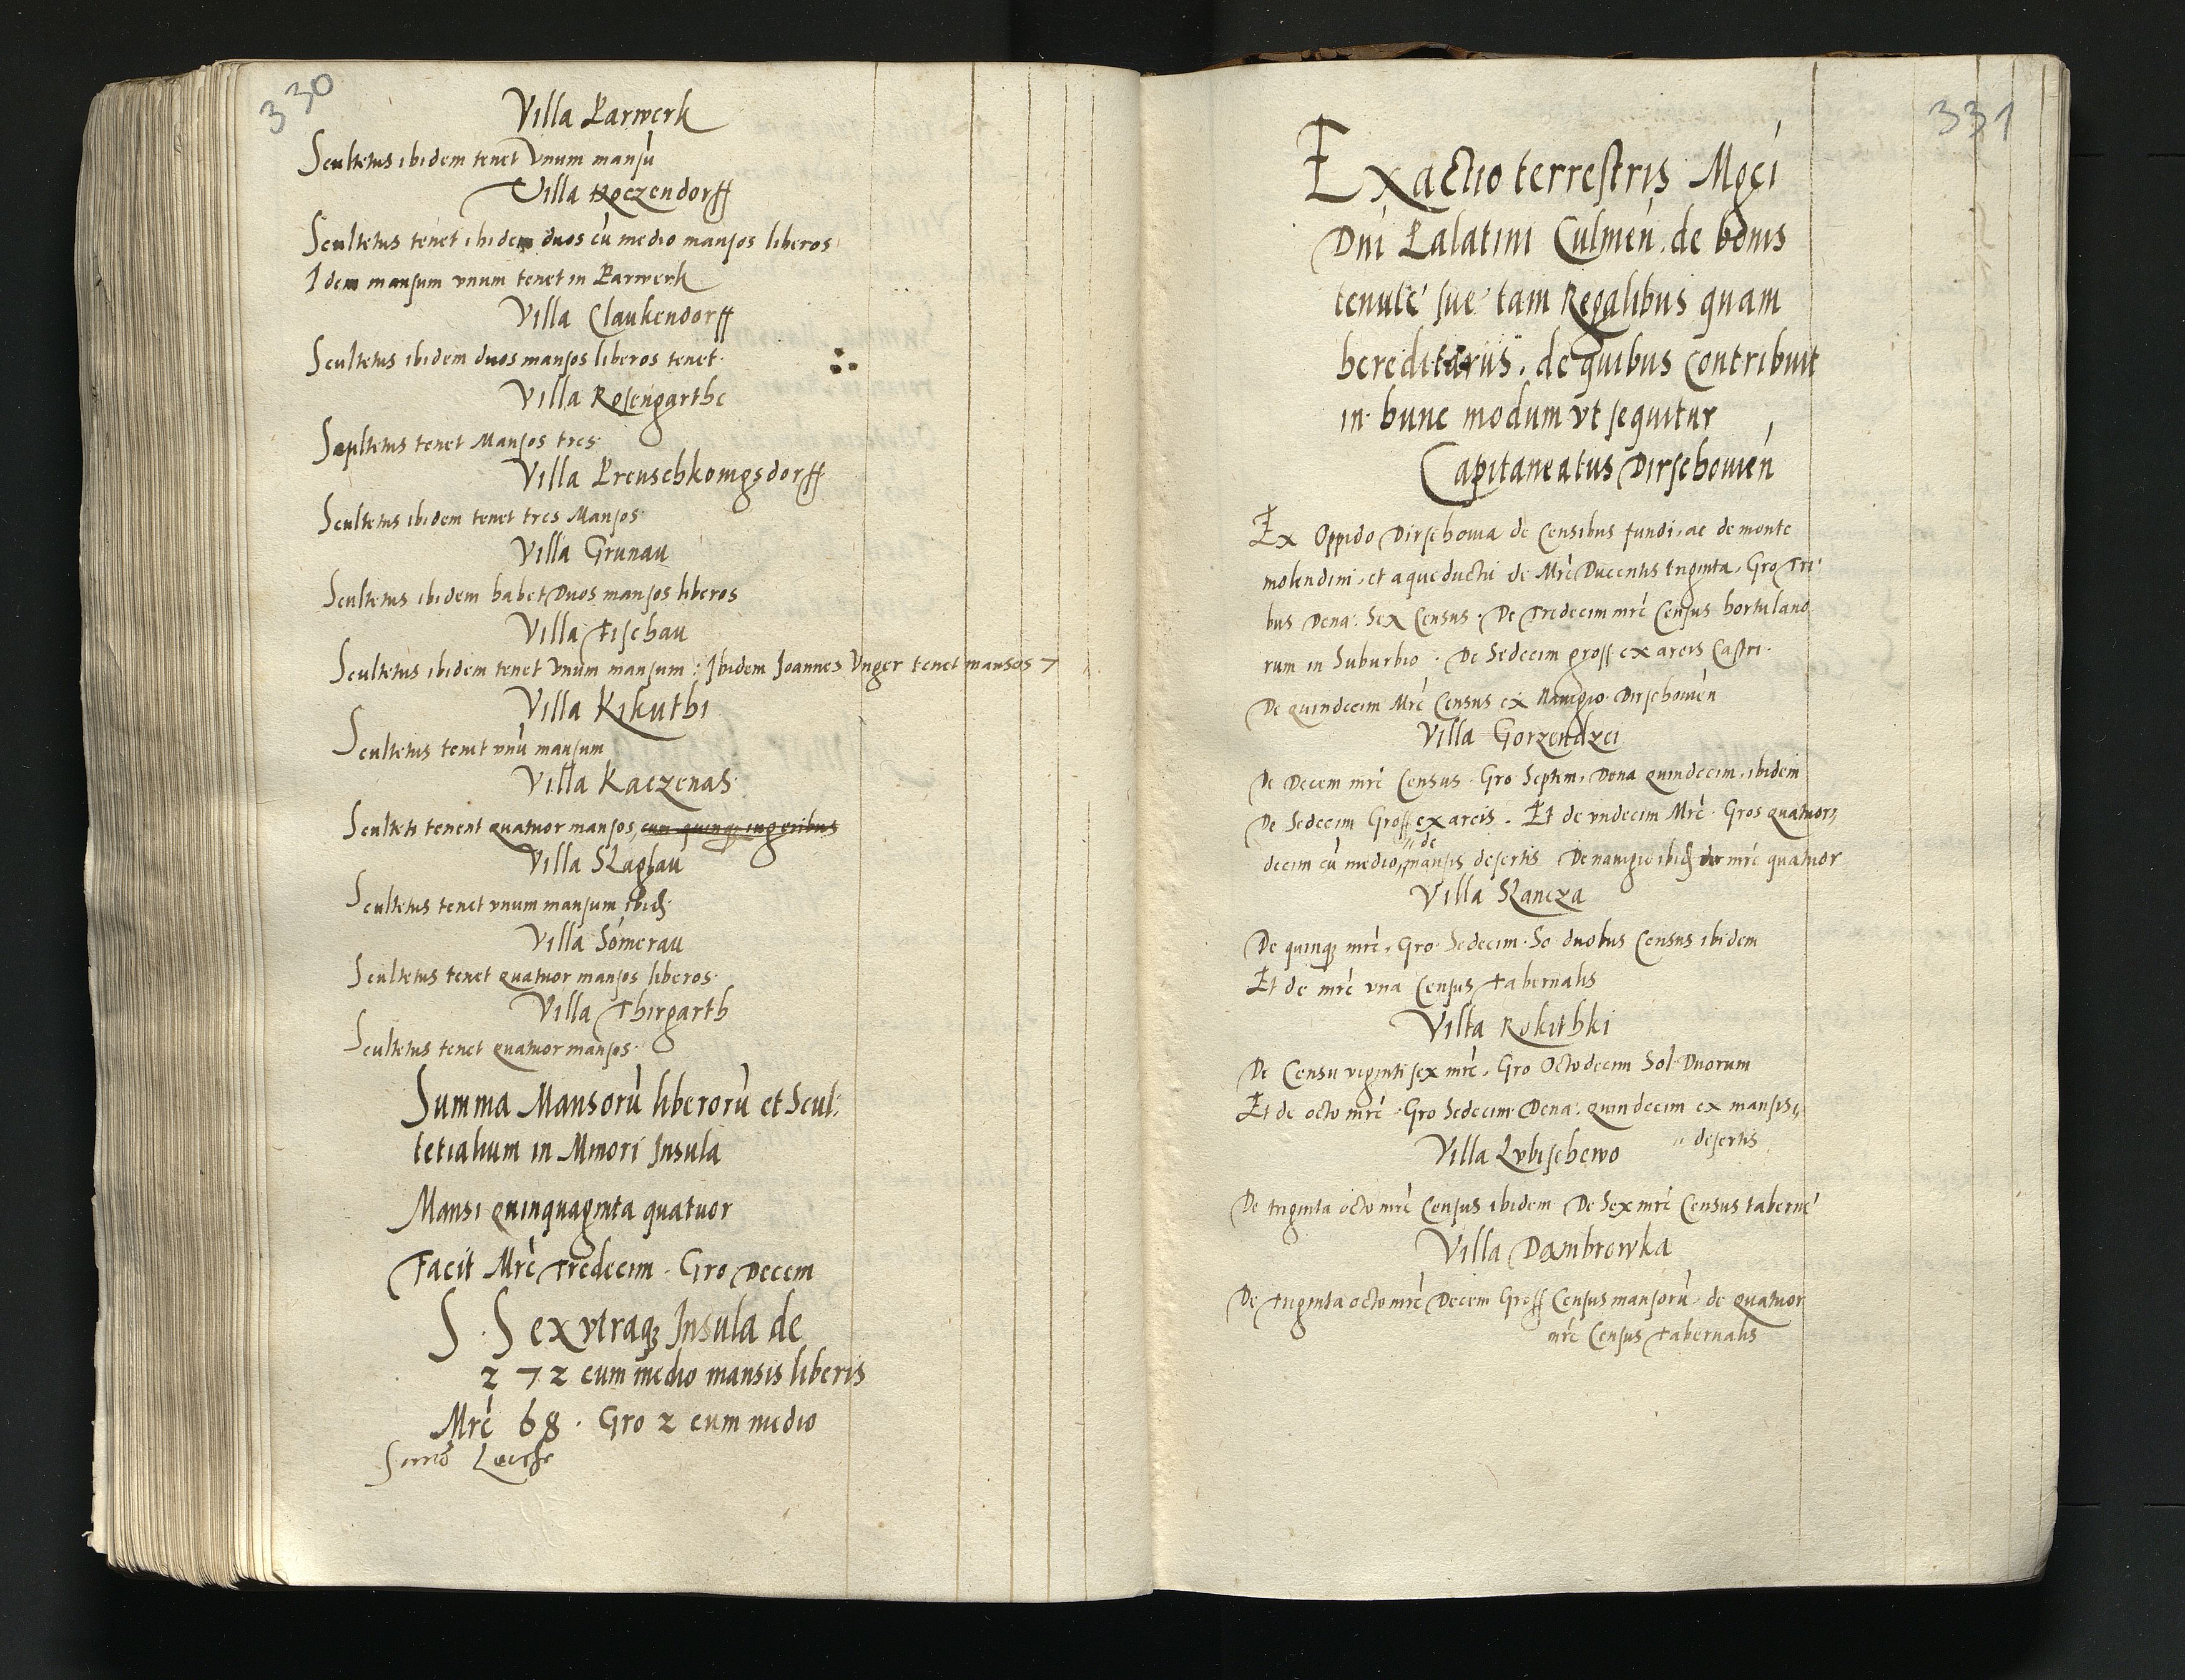 330
Villa Parwerk
Scultetus ibidem tenet Vnum mansu̇
Villa Koczendorff
Scultetus tenet ibidem duos cu̇ medio mansos liberos
Idem mansum vnum tenet in Parwerk
Villa Claukendorff
Scultetus ibidem duos mansos liberos tenet.
Villa Rosengarthe
Scultetus tenet Mansos tres.
Villa Preuschkonigsdorff
Scultetus ibidem tenet tres Mansos.
Villa Grunau
Scultetus ibidem habet Duos mansos liberos
Villa Fischau
Scultetus ibidem tenet vnum mansum : Ibidem Joannes Vnger tenet mansos 7
Villa Kikuthi
Scultetus tenet vnu̇ mansum
Villa Kaczenas.
Sculteti tenent quatuor mansos cum quinqꝫ iugeribus
Villa Slaglau
Scultetus tenet vnum mansum ibid.
Villa Somerau
Scultetus tenet quatuor mansos liberos.
Villa Thirgarth
Scultetus tenet quatuor mansos.
Summa Mansoru̇ liberoru̇ et Scul:
tetialium in Minori Insula
Mansi quinquaginta quatuor
Facit Mrc̍ Tredecim. Gro Decem
S. S ex vtraqꝫ Insula de
272 cum medio mansis liberis
Mrc̍ 68. Gro 2 cum medio
331
Exactio terrestris Mgci
Dni Palatini Culmen̍. de bonis
tenute̍ sue tam Regalibus quam
hereditariis. de quibus Contribuit
in hunc modum vt sequitur
Capitaneatus Dirschouien̍
Ex Oppido Dirschouia de Censibus fundi, ac de monte
molendini, et aqueductu de Mrc̍ Ducentis triginta, Gro Tri:
bus Dena: Sex Census. De Tredecim mrc̍ Census hortulano
rum in Suburbio. De Sedecim gross ex areis Castri.
De quindecim Mrc̍ Census ex Nauigio Dirschouien̍
Villa Gorzendzei
De Decem mrc̍ Census. Gro Septem, Dena quindecim, ibidem
De Sedecim Gross ex areis. Et de vndecim Mrc̍. Gros quatuor,,
decim cu̇ medio,, de mansis desertis De nauigio ibid de mrc̍ quatuor
Villa Slancza
De quinqꝫ mrc̍, Gro. Sedecim. So duobus Census ibidem
Et de mrc̍ vna Census tabernalis
Villa Rokithki
De Censu viginti sex mrc̍, Gro Octodecim Sol Duorum
Et de octo mrc̍. Gro Sedecim Dena: quindecim ex mansis,,
,, desertis
Villa Lubischewo
De triginta octo mrc̍ Census ibidem De Sex mrc̍ Census taberne̍
Villa Dambrowka
De triginta octo mrc̍ Decem Gross Census mansoru̇, de quatuor
mrc̍ Census tabernalis